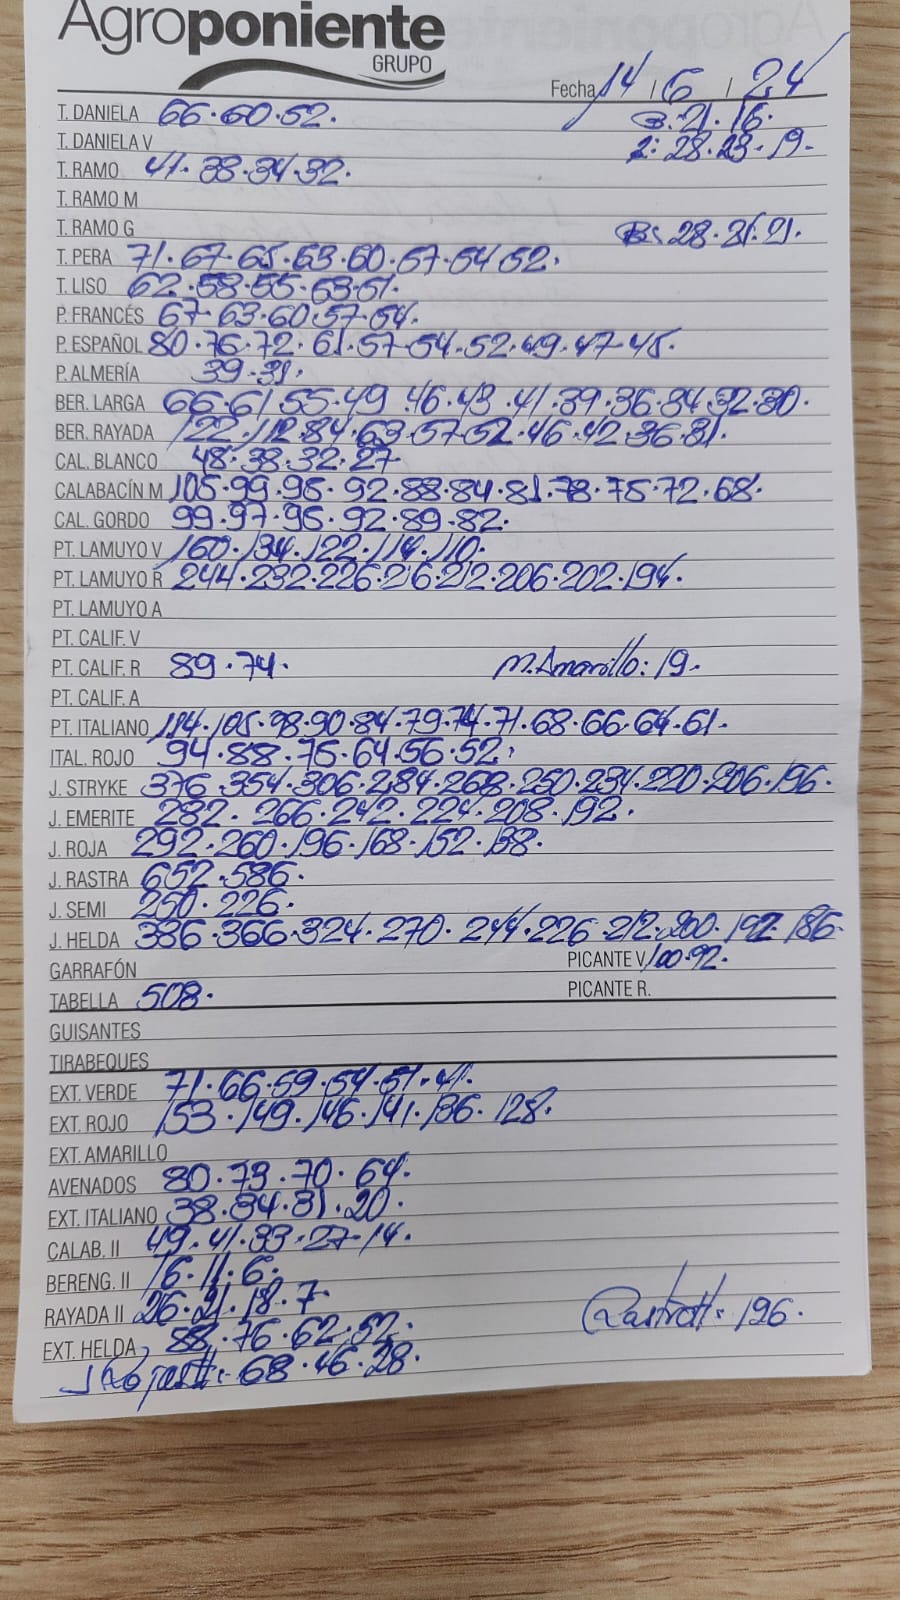 Agroponiente
GRUPO
Fecha 14 / 6 / 24
T. DANIELA 66.60.52. B:21.16.
T. DANIELA V 2: 28.23.19-
T. RAMO 41.38.34.32.
T. RAMO M
T. RAMO G B: 28.21.21.
T. PERA 71.67.65.63.60.57.54.52.
T. LISO 62.58.55.53.51.
P. FRANCÉS 67.63.60.57.54.
P. ESPAÑOL 80.76.72.61.57.54.52.49.47.45.
P. ALMERÍA 39.31.
BER. LARGA 66.61.55.49.46.43.41.39.36.34.32.30.
BER. RAYADA 122.112.84.63.57.52.46.42.36.31.
CAL. BLANCO 48.38.32.27
CALABACÍN M 105.99.95.92.88.84.81.78.75.72.68.
CAL. GORDO 99.97.95.92.89.82.
PT. LAMUYO V 160.134.122.114.110.
PT. LAMUYO R 244.232.226.216.212.206.202.194.
PT. LAMUYO A
PT. CALIF. V
PT. CALIF. R 89.74. M.Amarillo: 19.
PT. CALIF. A
PT. ITALIANO 114.105.98.90.84.79.74.71.68.66.64.61.
ITAL. ROJO 94.88.75.64.56.52.
J. STRYKE 376.354.306.284.268.250.234.220.206.196.
J. EMERITE 282.266.242.224.208.192.
J. ROJA 292.260.196.168.152.138.
J. RASTRA 652.586.
J. SEMI 250.226.
J. HELDA 386.366.324.270.244.226.212.200.192.186.
GARRAFÓN PICANTE V. 100.92.
TABELLA 508. PICANTE R.
GUISANTES
TIRABEQUES
EXT. VERDE 71.66.59.54.51.41.
EXT. ROJO 153.149.146.141.136.128.
EXT. AMARILLO
AVENADOS 80.73.70.64.
EXT. ITALIANO 38.34.31.20.
CALAB. II 49.41.33.27.14.
BERENG. II 16.11.6.
RAYADA II 26.21.18.7.
EXT. HELDA 88.76.62.52. 196.
68.46.28.